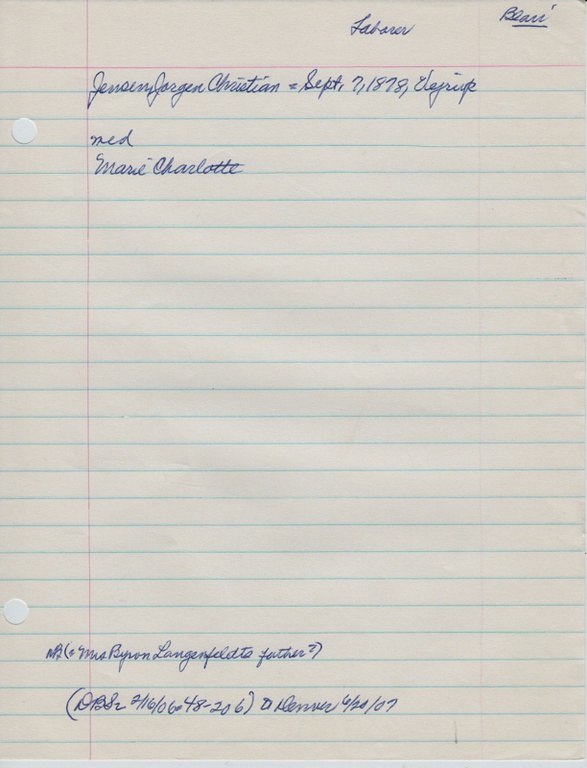 Blair
Laborer
Jensen, Jorgen Christian = Sept. 7, 1878, Vejrup
med
Marie Charlotte
NB (= Mrs Byron Langenfeldts father?)
(DBS 2/16/06 48-206) to Denver 6/20/07